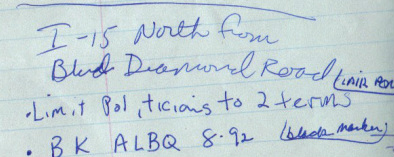 I-15 North from
Blud Diamond Road
• Limit Politicians to 2 terms
• BK ALBQ 8.92 (black marker)